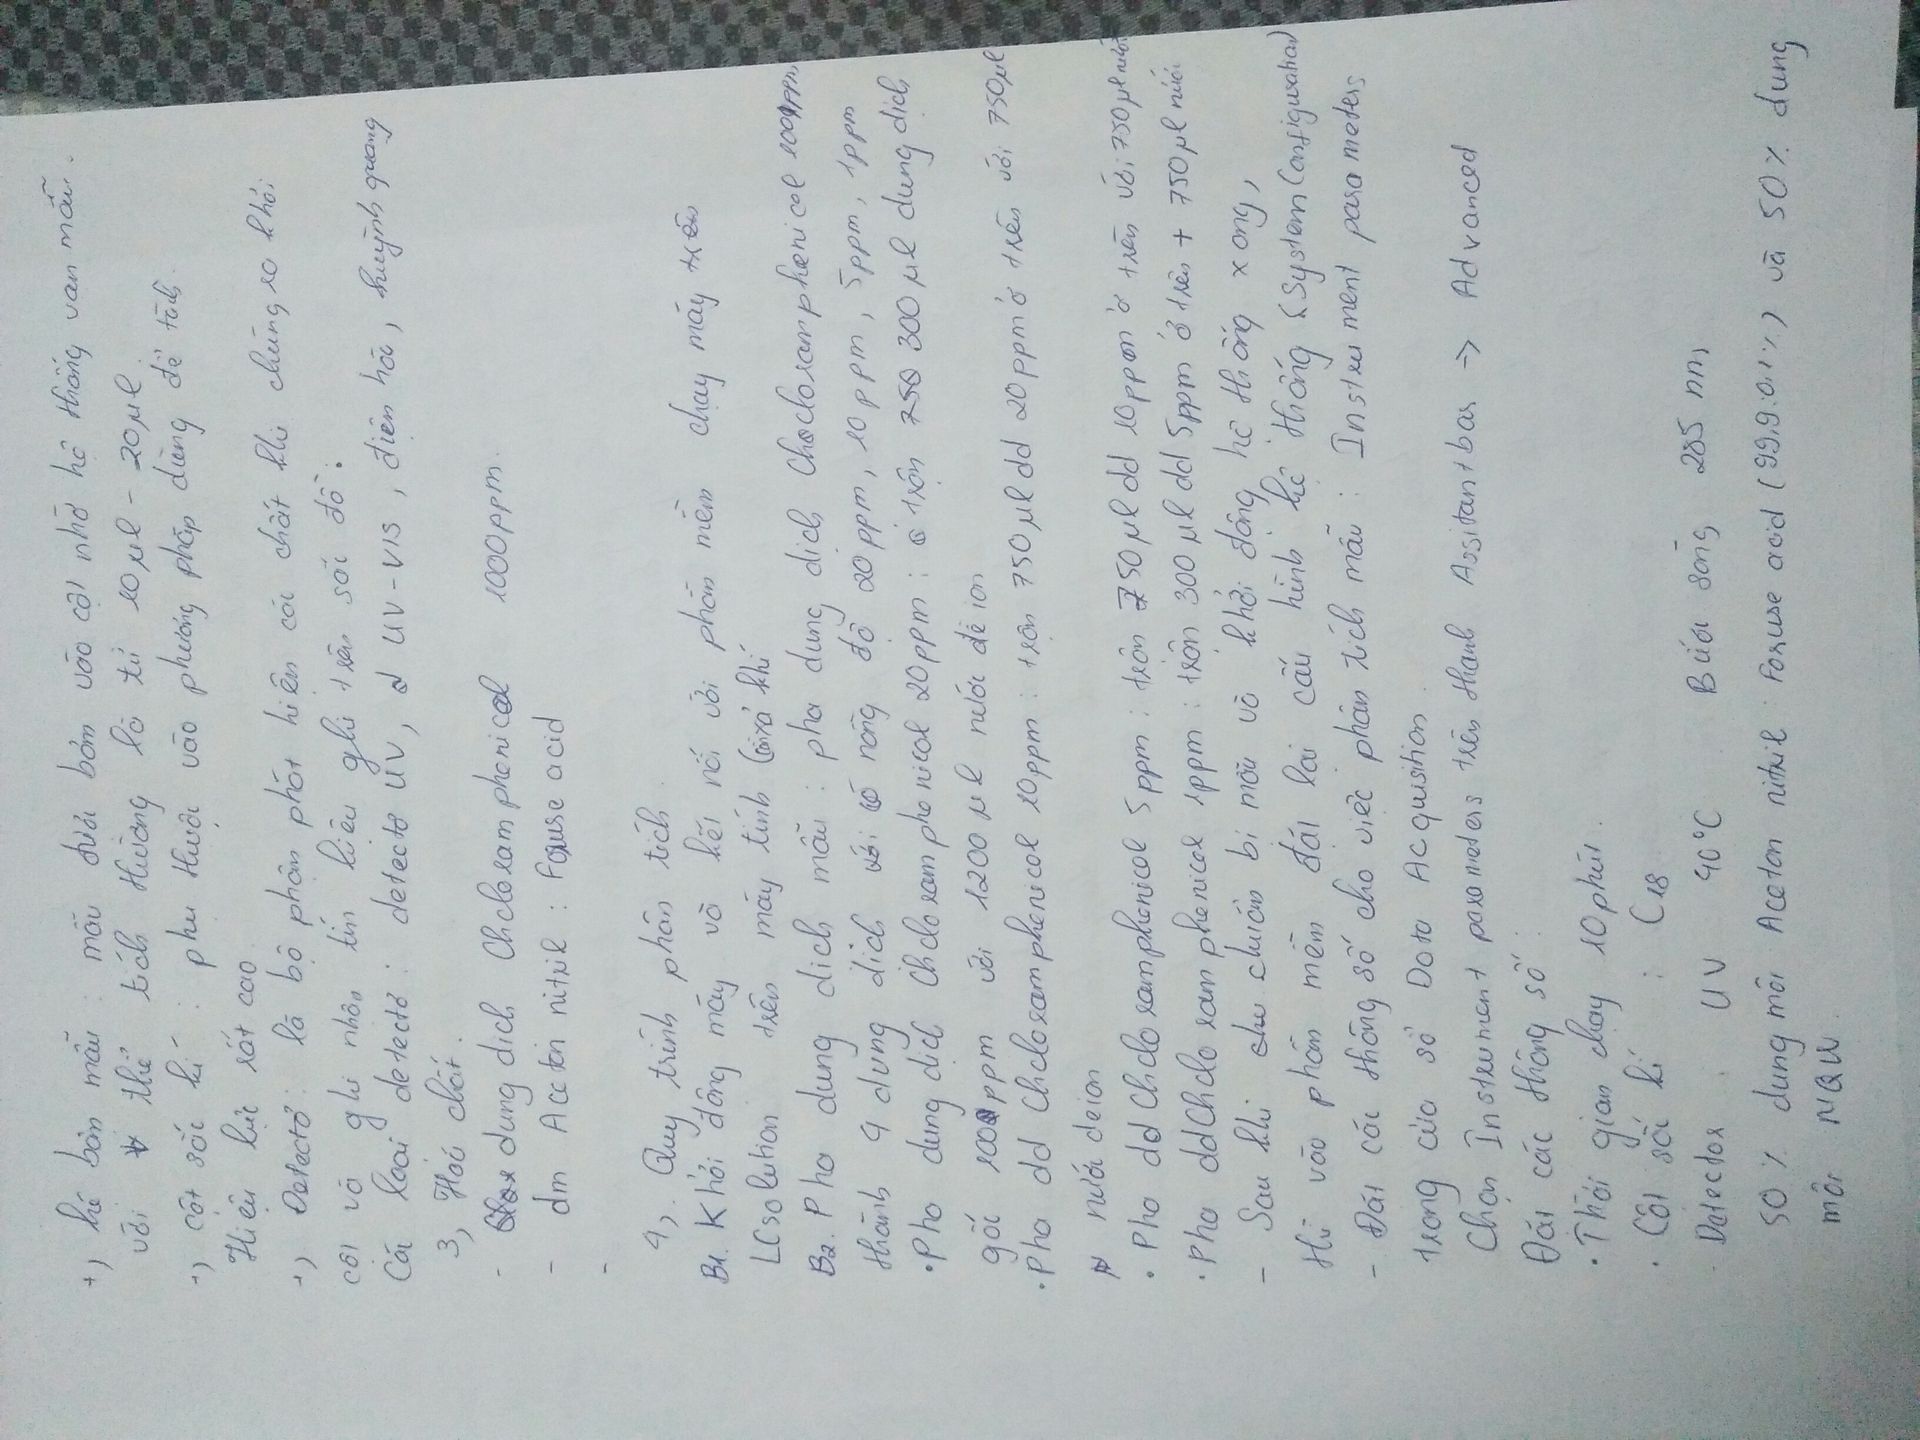 +) hệ bơm mẫu : mẫu được bơm vào cột nhờ hệ thống van mẫu.
với thể tích thường là từ 10 µl - 20 µl
+) cột sắc kí : phụ thuộc vào phương pháp dùng để tách.
Hiệu lực rất cao
+) Detectơ : là bộ phận phát hiện các chất khi chúng ra khỏi
cột và ghi nhận tín hiệu ghi trên sắc đồ.
Các loại detectơ : detectơ UV, UV-VIS, điện hóa, huỳnh quang
3, Hóa chất.
- dung dịch Chcloramphenical 1000 ppm.
- dm Aceton nitril : Foruse acid
-
4, Quy trình phân tích.
B1. Khởi động máy và kết nối với phần mềm chạy máy trên
LCsolution trên máy tính
B2. Pha dung dịch mẫu : pha dung dịch Chcloramphenicol 100 ppm
thành 4 dung dịch có nồng độ 20 ppm, 10 ppm, 5 ppm, 1 ppm
• Pha dung dịch Chcloramphenicol 20 ppm : trộn 300 µl dung dịch
gốc 100 ppm với 1200 µl nước đề ion
• Pha dd Chcloramphenicol 10 ppm : trộn 750 µl dd 20 ppm ở trên với 750 µl
nước deion
• Pha dd Chcloramphenicol 5 ppm : trộn 750 µl dd 10 ppm ở trên với 750 µl nước
• Pha dd Chcloramphenicol 1 ppm : trộn 300 µl dd 5 ppm ở trên + 750 µl nước
- Sau khi chuẩn bị mẫu và khởi động hệ thống xong,
vào phần mềm đặt lại cấu hình hệ thống (System Configuration)
- Đặt các thông số cho việc phân tích mẫu : Instrument parameters
trong cửa sổ Data Acquisition.
Chọn Instrument parameters trên thanh Assitant bar → Advanced
Đặt các thông số :
• Thời gian chạy 10 phút.
• Cột sắc kí : C18
Detector UV 40°C Bước sóng 285 nm,
50 % dung môi Aceton nitril : Foruse acid (99,9:0,1%) và 50 % dung
môi MQW